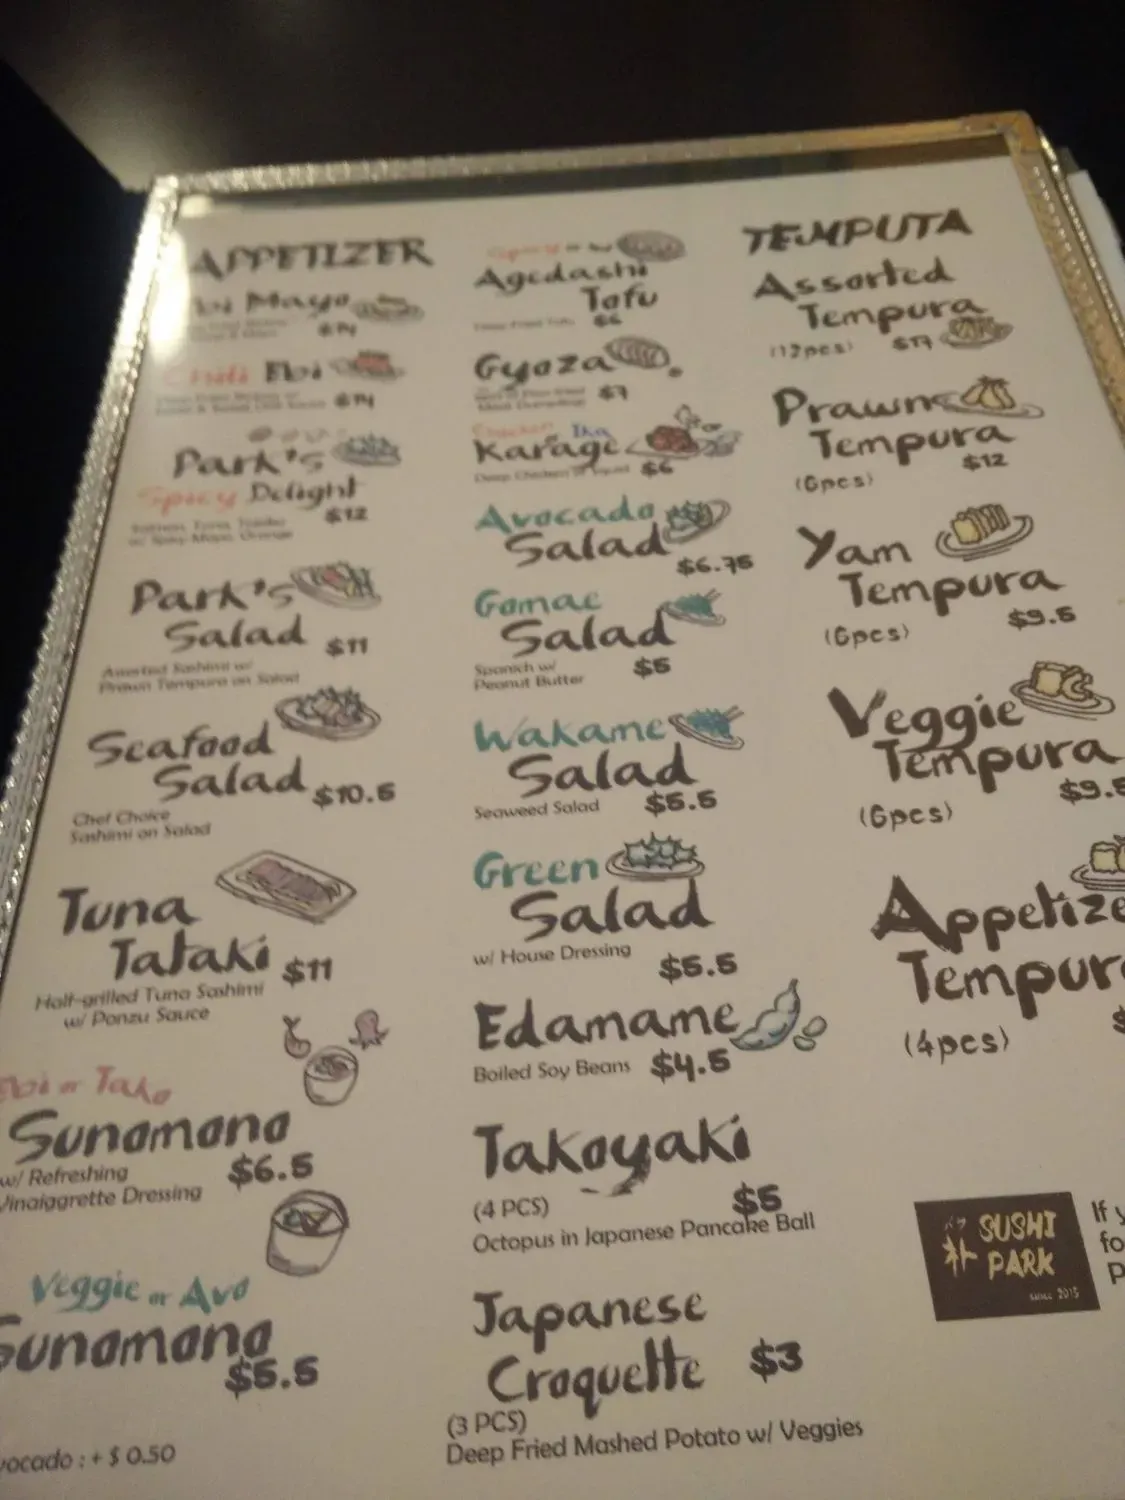 APPETIZER
Ebi Mayo
$14
Chili Ebi
$14
Park's
Spicy Delight
$12
Park's
Salad $11
Assorted Sashimi w/
Prawn Tempura on Salad
Seafood
Salad $10.5
Chef Choice
Sashimi on Salad
Tuna
Tataki $11
Half-grilled Tuna Sashimi
w/ Ponzu Sauce
Ebi or Tako
Sunomono
w/ Refreshing $6.5
Vinaiggrette Dressing
Veggie or Avo
Sunomono
$5.5
vocado : + $ 0.50
Agedashi
Tofu
$6
Gyoza
$7
Chicken Ika
Karage
Deep Chicken or Squid $6
Avocado
Salad
$6.75
Gomae
Salad
Spanich w/ $5
Peanut Butter
Wakame
Salad
Seaweed Salad $5.5
Green
Salad
w/ House Dressing $5.5
Edamame
Boiled Soy Beans $4.5
Takoyaki
(4 PCS) $5
Octopus in Japanese Pancake Ball
Japanese
Croquette $3
(3 PCS)
Deep Fried Mashed Potato w/ Veggies
TEMPUTA
Assorted
Tempura
(12pcs) $17
Prawn
Tempura
(6pcs) $12
Yam
Tempura
(6pcs) $9.5
Veggie
Tempura
(6pcs) $9.5
Appetize
Tempur
(4pcs) $
パク
朴
SUSHI
PARK
SINCE 2015
If y
fo
P